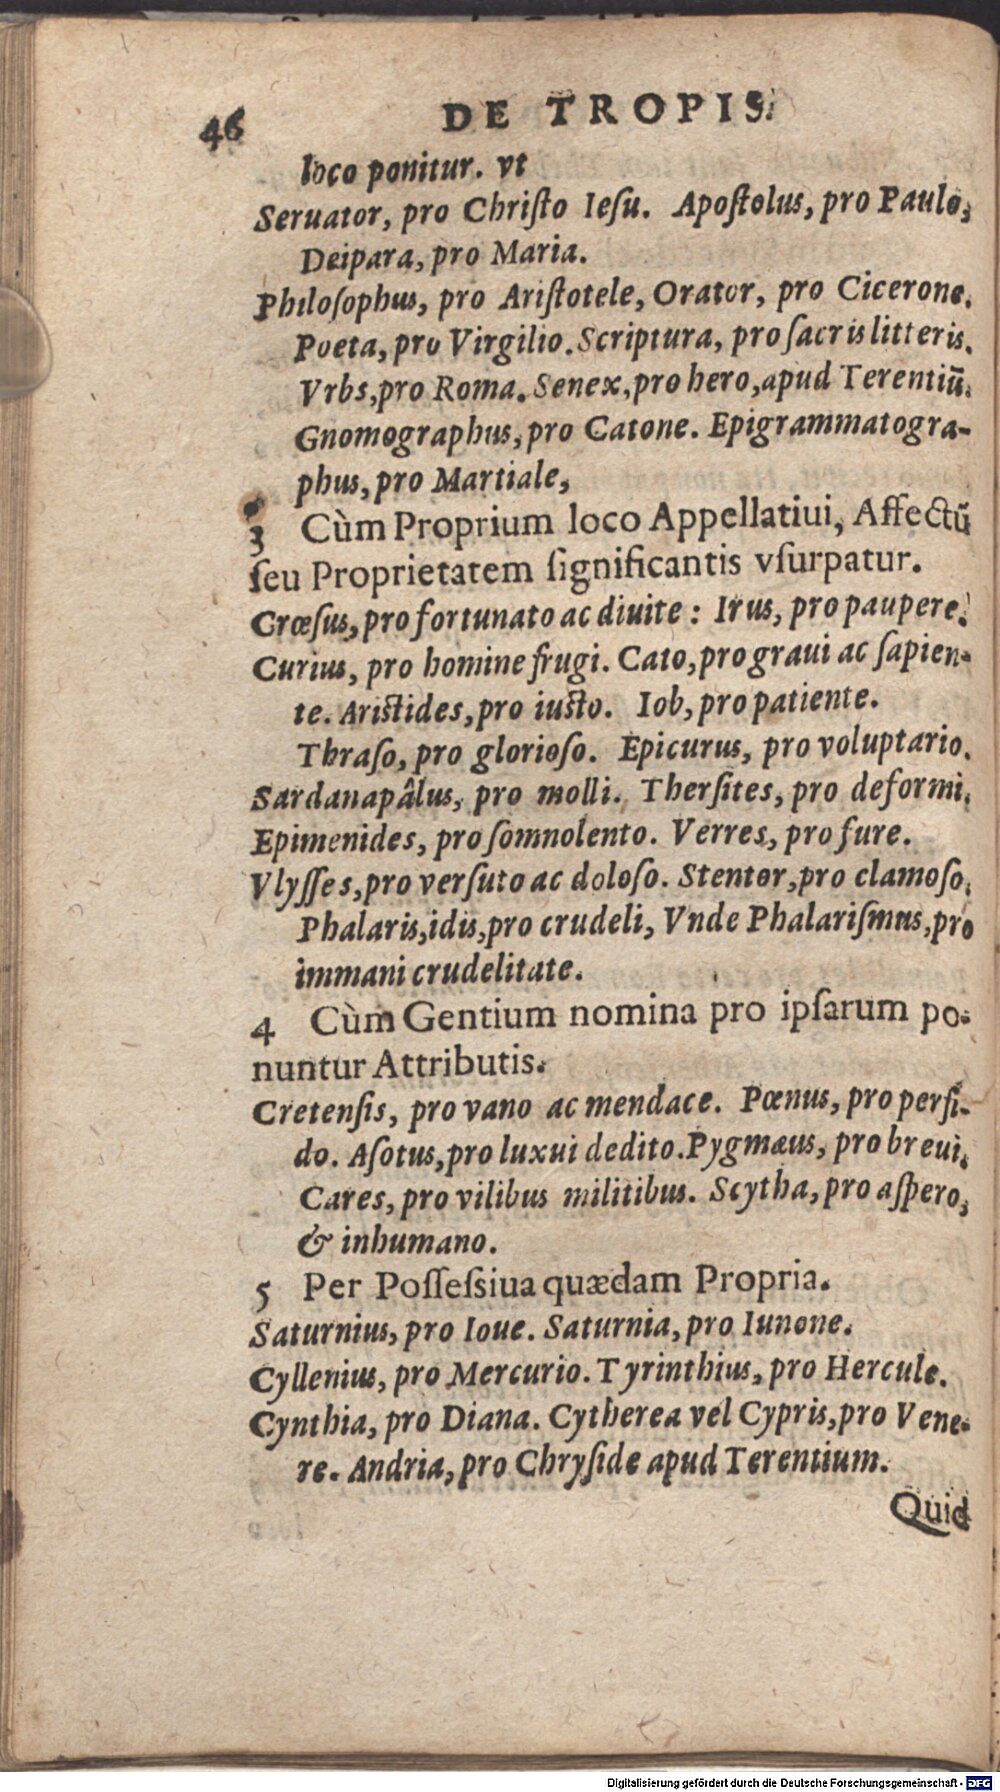 46 DE TROPIS.
loco ponitur. vt
Seruator, pro Chriſto Ieſu. Apoſtolus, pro Paulo,
Deipara, pro Maria.
Philoſophus, pro Ariſtotele, Orator, pro Cicerone.
Poeta, pro Virgilio. Scriptura, pro ſacris litteris.
Vrbs, pro Roma. Senex, pro hero, apud Terentiū.
Gnomographus, pro Catone. Epigrammatogra-
phus, pro Martiale,
3 Cùm Proprium loco Appellatiui, Affectū
ſeu Proprietatem ſignificantis vſurpatur.
Crœſus, pro fortunato ac diuite: Irus, pro paupere.
Curius, pro homine frugi. Cato, pro graui ac ſapien-
te. Ariſtides, pro iuſto. Iob, pro patiente.
Thraſo, pro glorioſo. Epicurus, pro voluptario.
Sardanapâlus, pro molli. Therſites, pro deformi.
Epimenides, pro ſomnolento. Verres, pro fure.
Vlyſſes, pro verſuto ac doloſo. Stentor, pro clamoſo.
Phalaris, idis, pro crudeli, Vnde Phalariſmus, pro
immani crudelitate.
4 Cùm Gentium nomina pro ipſarum po-
nuntur Attributis.
Cretenſis, pro vano ac mendace. Pœnus, pro perfi-
do. Aſotus, pro luxui dedito. Pygmæus, pro breui.
Cares, pro vilibus militibus. Scytha, pro aſpero,
& inhumano.
5 Per Poſſeſsiua quædam Propria.
Saturnius, pro Ioue. Saturnia, pro Iunone.
Cyllenius, pro Mercurio. Tyrinthius, pro Hercule.
Cynthia, pro Diana. Cytherea vel Cypris, pro Vene-
re. Andria, pro Chryſide apud Terentium.
Quid
Digitalisierung gefördert durch die Deutsche Forschungsgemeinschaft - DFG